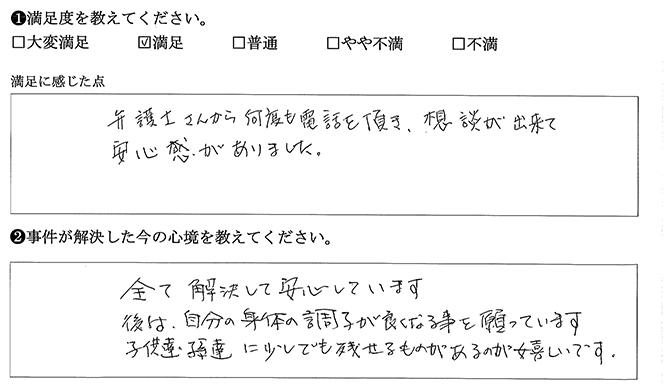 ❶満足度を教えてください。
□大変満足 ☑満足 □普通 □やや不満 □不満
満足に感じた点
弁護士さんから何度も電話を頂き、想談が出来て
安心感がありました。
❷事件が解決した今の心境を教えてください。
全て解決して安心しています
後は、自分の身体の調子が良くなる事を願っています
子供達、孫達に少しでも残せるものがあるのが嬉しいです。